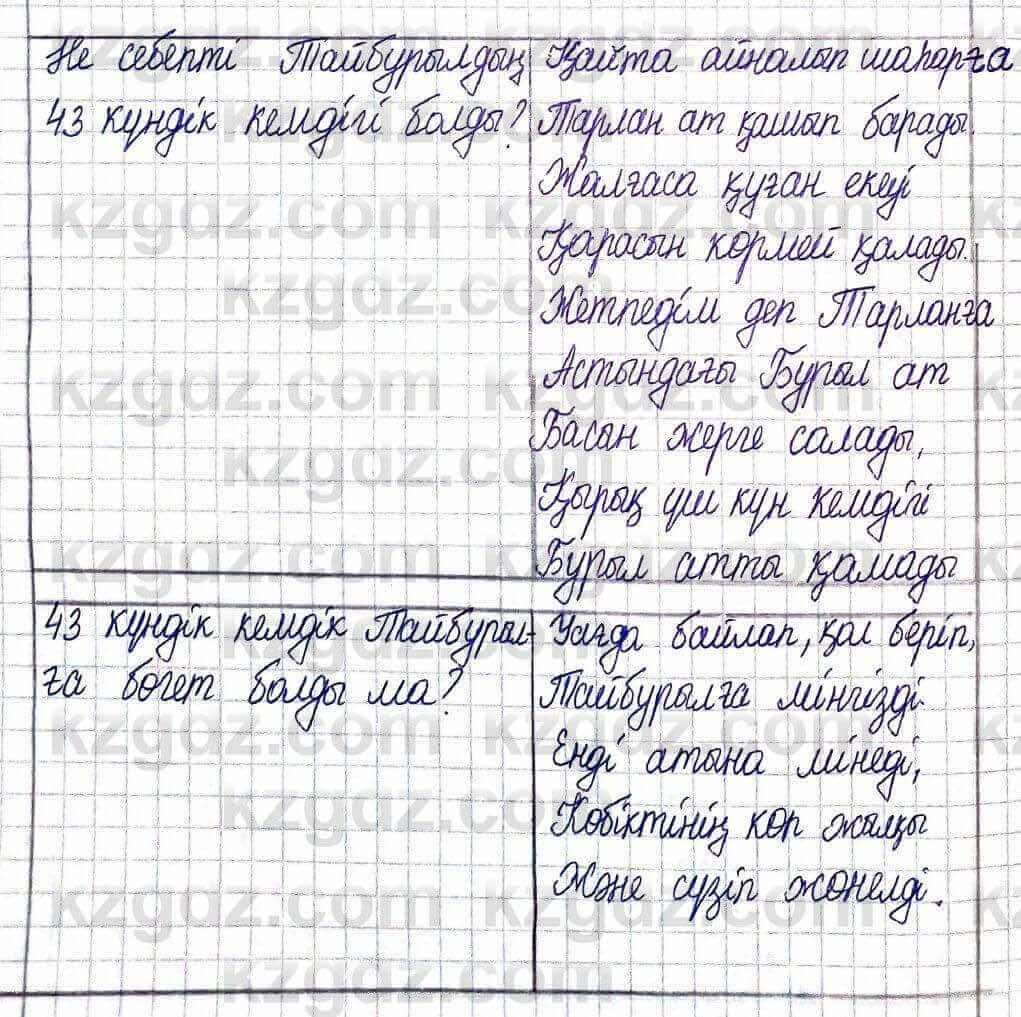 Не себепті Тайбурылдың
43 күндік кемдігі болды?
Қайта айналып шапарға
Тарлан ат қашып барады.
Жалғаса қуған екеуі
Қарасын көрмей қалады.
Жетпедім деп Тарланға
Астындағы Бурыл ат
Басын жерге салады,
Қырық үш күн кемдігі
Бурыл атты қамады
43 күндік кемдік Тайбурыл-
ға бөгет болды ма?
Уағда байлап, қол беріп,
Тайбурылға мінгізді.
Енді атына мінеді,
Көбіктінің көп жылқы
Және сүзіп жөнелді.
kzgdz.com